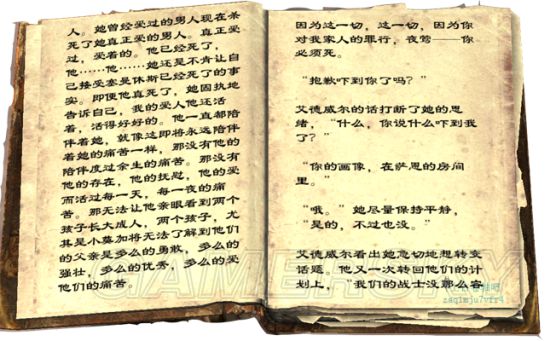 人。她曾经爱过的男人现在杀
死了她真正爱的男人。真正爱
过，爱着的。他已经死了，
他……他……她还是不肯让自
己接受塞曼休斯已经死了的事
实。即便他真死了，她固执地
告诉自己，我的爱人他还活
着，活得好好的。他一直都陪
伴着她，就像这即将永远陪伴
着她的痛苦一样，那没有他的
陪伴度过余生的痛苦。那没有
他的存在，他的抚慰，他的爱
而活过每一天，每一夜的痛
苦。那无法让他亲眼看到两个
孩子长大成人，两个孩子，尤
其是小莫加将无法了解到他们
的父亲是多么的勇敢，多么的
强壮，多么的优秀，多么的爱
他们的痛苦。
因为这一切，这一切，因为你
对我家人的罪行，夜莺——你
必须死。
“抱歉吓到你了吗？”
艾德威尔的话打断了她的思
绪，“什么，你说什么吓到我
了？”
“你的画像，在萨恩的房间
里。”
“哦。”她尽量保持平静，
“是的，不过也没。”
艾德威尔看出她急切地想转变
话题。他又一次转回他们的计
划上，“我们的战士没那么容
GAMERSKY